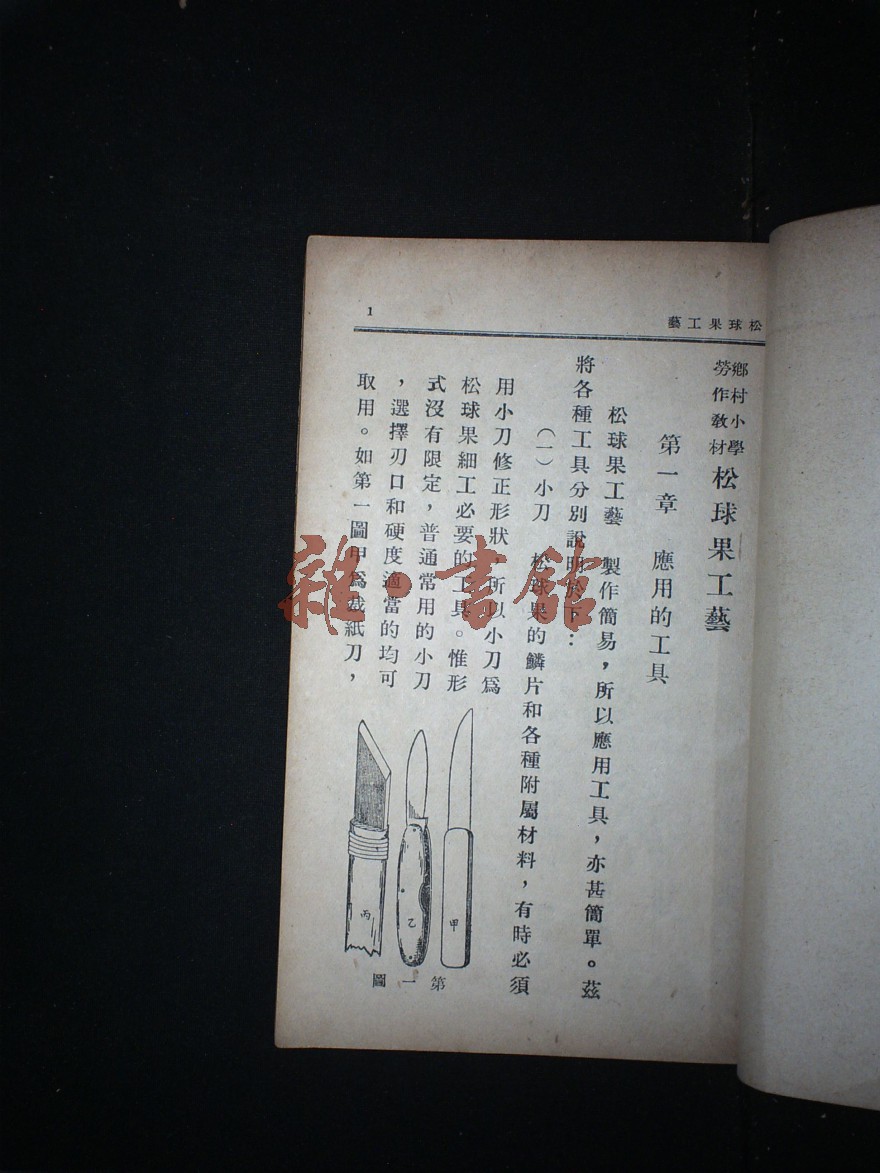 藝工果球松
1
鄉村小學
勞作教材
松球果工藝
第一章　應用的工具
松球果工藝　製作簡易，所以應用工具，亦甚簡單。茲
將各種工具分別說明於下：
（一）小刀　松球果的鱗片和各種附屬材料，有時必須
用小刀修正形狀，所以小刀爲
松球果細工必要的工具。惟形
式沒有限定，普通常用的小刀
，選擇刃口和硬度適當的均可
取用。如第一圖甲爲裁紙刀，
甲
乙
丙
圖一第
雜·書館